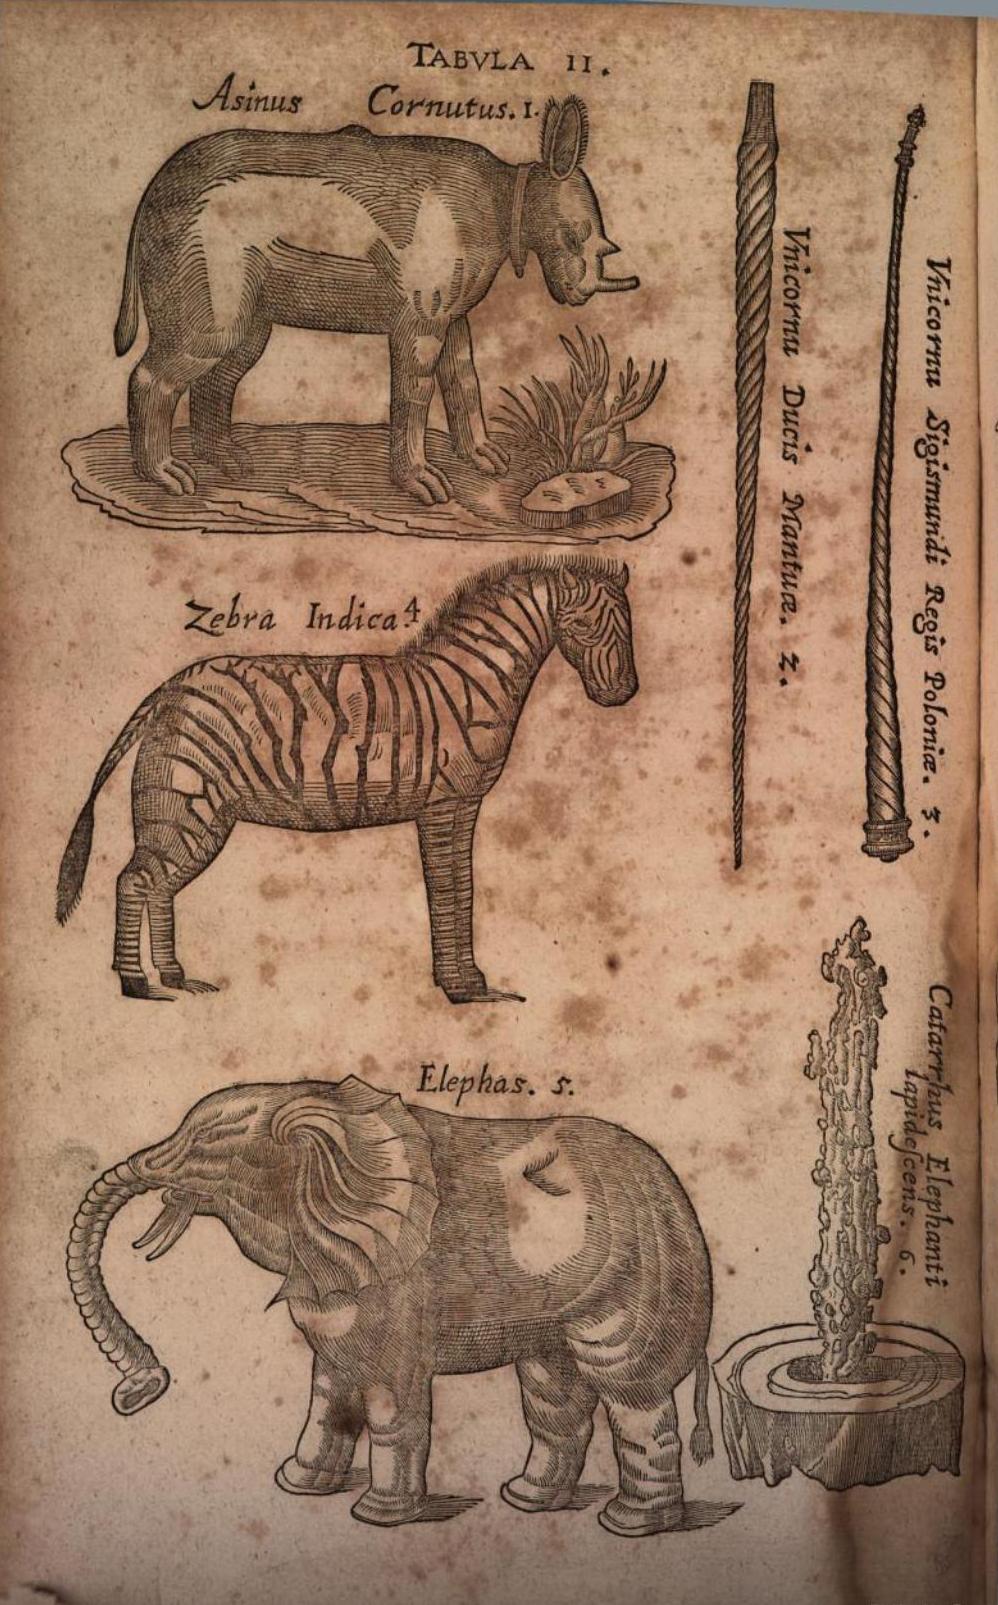 TABVLA II.
Asinus Cornutus. 1.
Vnicornu Ducis Mantuæ. 2.
Vnicornu Sigismundi Regis Poloniæ. 3.
Zebra Indica. 4
Elephas. 5.
Catarrhus Elephanti
lapideſcens. 6.